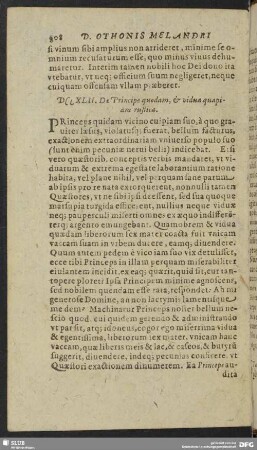 808 D. OTHONIS MELANDRI
si vinum sibi amplius non arrideret, minime se o-
mnium recusaturum esse, quo minus vinus dehu-
maretor. Interim tamen nobili hoc Dei dono ita
vtebatur, vt neq; officium suum negligeret, neque
cuiquam offensam vllam præberet.
DCCXLII. De Principe quodam, & vidua quapi-
am rustica.
PRinceps quidam vicino cuipiam suo, à quo gra-
uiter læsus, violatusq; fuerat, bellum facturus,
exactionem extraordinariam vniuerso populo suo
(sunt enim pecuniæ nerui belli) indicebat. Et si
vero quæstorib. conceptis verbis mandaret, vt vi-
duarum & extrema egestate laborantium ratione
habita, vel plane nihil, vel perquam sane parum
ab ipsis pro re nata extorquerent, non nulli tamen
Quæstores, vt ne sibi ipsi deessent, sed sua quoque
marsupia turgida efficerent, nullius neque viduæ
neq; pauperculi miserti omnes ex æquo indifferē-
ter q; argento emungebant. Quamobrem & vidua
quædam liberorum sex mater coacta fuit vnicam
vaccam suam in vrbem ducere, eamq; diuendere.
Quum autem pedem è vico iam suo vix detulisset,
ecce tibi Princeps in illam perquam miserabiliter
eiulantem incidit, ex eaq; quærit, quid sit, cur tan-
topere ploret? Ipsa Principem minime agnoscens,
sed nobilem quendam esse rata, respondet: Ah mi
generose Domine, an non lacrymis lamentisque
me dem? Machinatur Princeps noster bellum ne-
scio quod. cui quidem gerendo & administrando
vt par sit, atq; idoneus, cogor ego miserrima vidua
& egentissima, liberorum sex mater. vnicam hanc
vaccam, quæ liberis meis & lac, & caseos, & butyrū
suggerit, diuendere, indeq; pecunias conflare, vt
Quæstori exactionem dinumerem. Ea Princeps au-
dita
SLUB